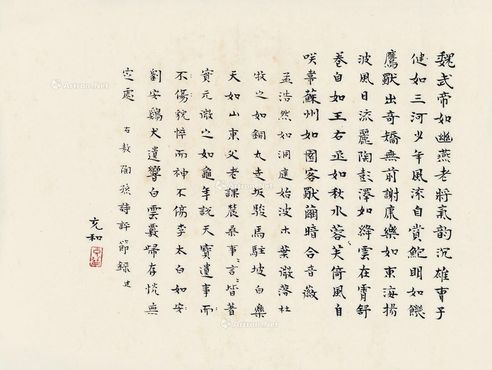 魏武帝如幽燕老將氣韵沉雄曹子
健如三河少年風流自賞鮑明如饑
鷹獨出奇矯無前謝康樂如東海揚
波風日流麗陶彭澤如絳雲在霄舒
卷自如王右丞如秋水蓉芙倚風自
咲韋蘇州如園客獨繭暗合音徽
孟浩然如洞庭始波木葉微落杜
牧之如銅丸走坂駿馬駐坡白樂
天如山東父老課農桑事:言:皆著
實元微之如龜年説天寶遺事而
不傷貌悴而神不傷李太白如安
劉安鷄犬遺響白雲覈歸存恍無
定處
右敖陶孫詩評節錄
充和